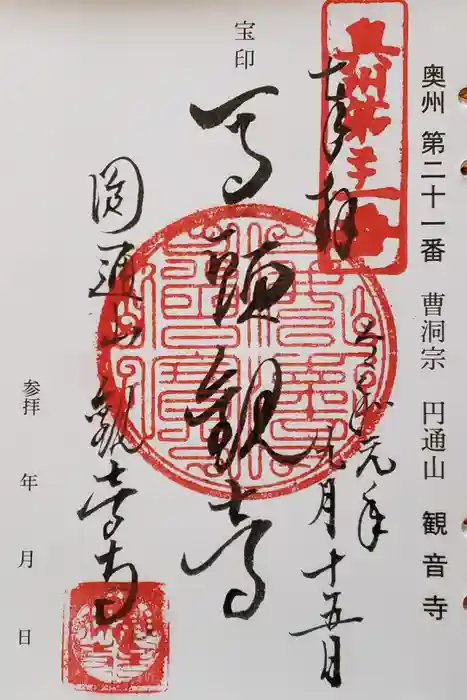 奥州 第二十一番 曹洞宗 円通山 観音寺
奥州第二十一番
奉拝
令和元年
九月十五日
宝印
馬頭観音
圓通山 観音寺
参拝 年 月 日